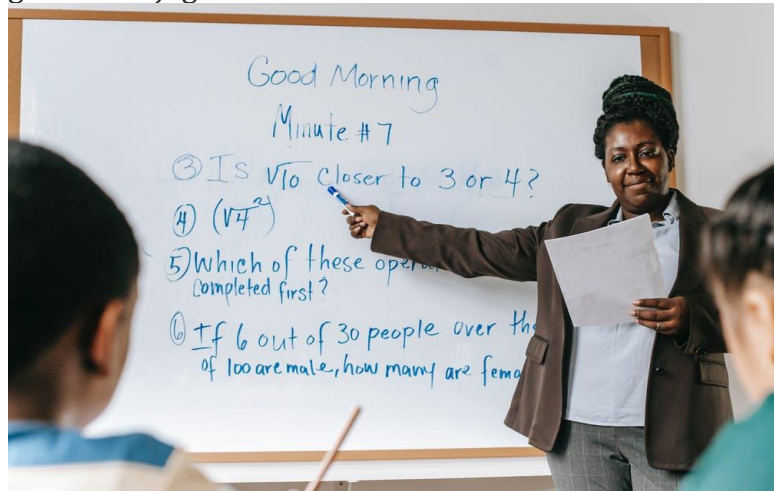 Good Morning
Minute # 7
③ Is √10 closer to 3 or 4?
④ (√4²)
5) Which of these
completed first?
⑥ If 6 out of 30 people over the
of 100 are male, how many are